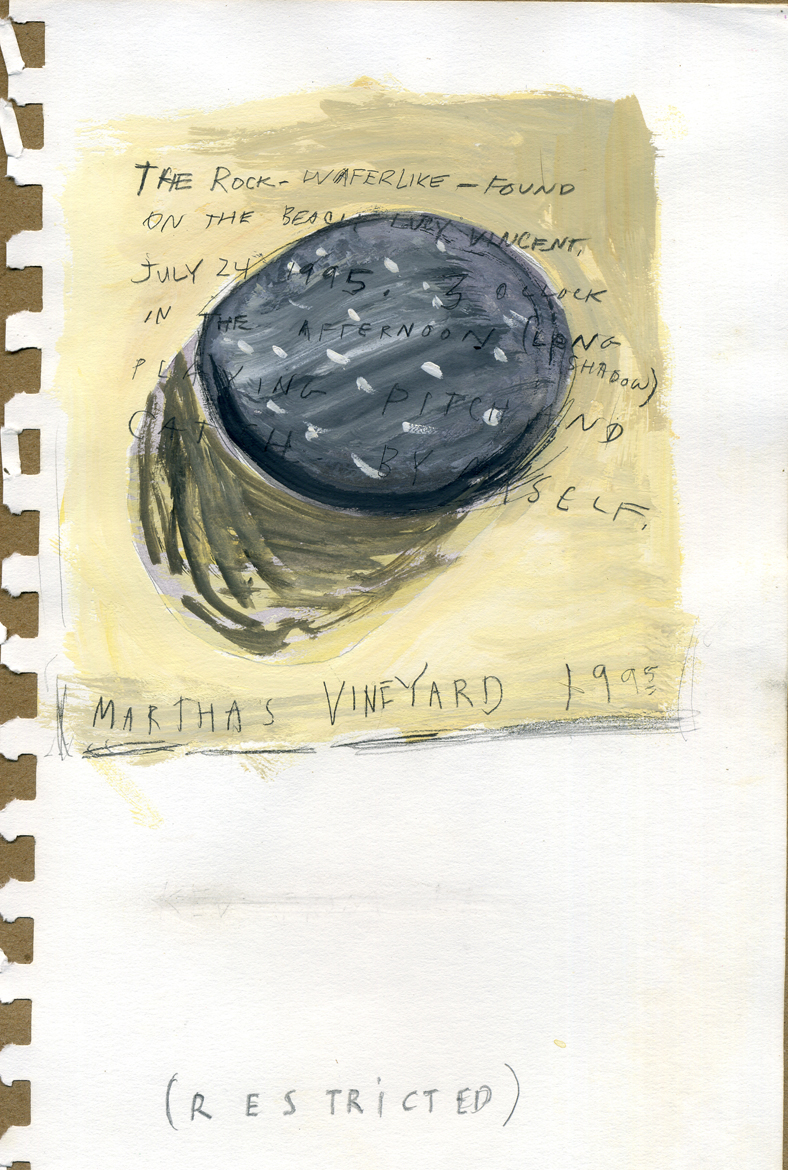 THE ROCK - WAFERLIKE - FOUND
ON THE BEACH LUCY VINCENT,
JULY 24 1995. 3 O CLOCK
IN THE AFTERNOON (LONG
SHADOW)
PLAYING PITCH AND
CATCH. BY MYSELF.
MARTHAS VINEYARD 1995
(RESTRICTED)